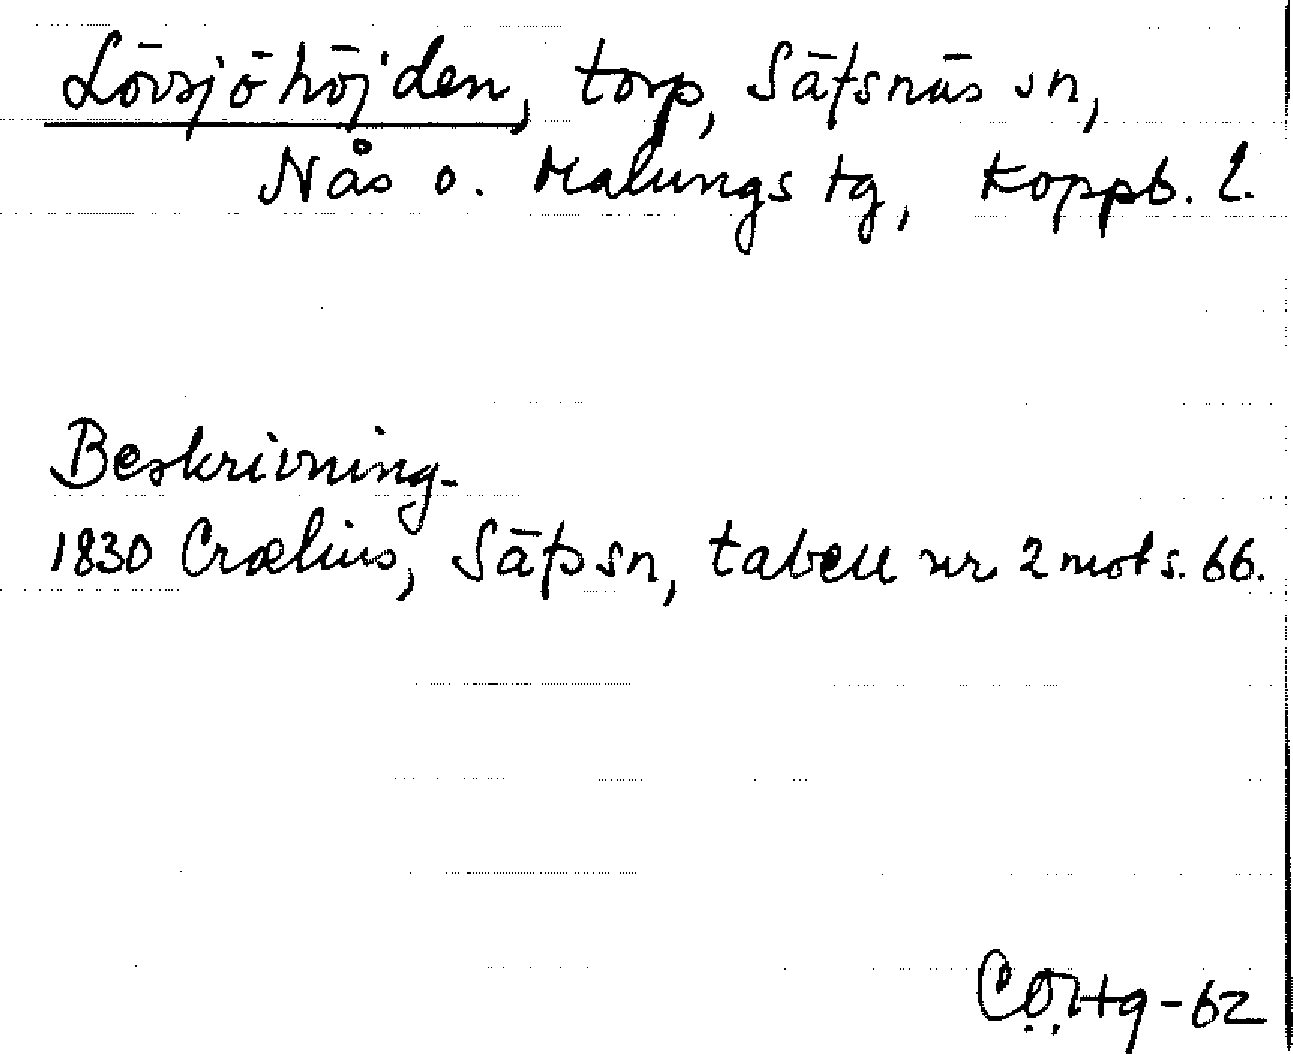 Lövsjöhöjden, torp, Säfsnäs sn,
Nås o. Malungs tg, Koppb. l.
Beskrivning.
1830 Crælius, Säfs sn, tabell nr 2 mot s. 66.
-62